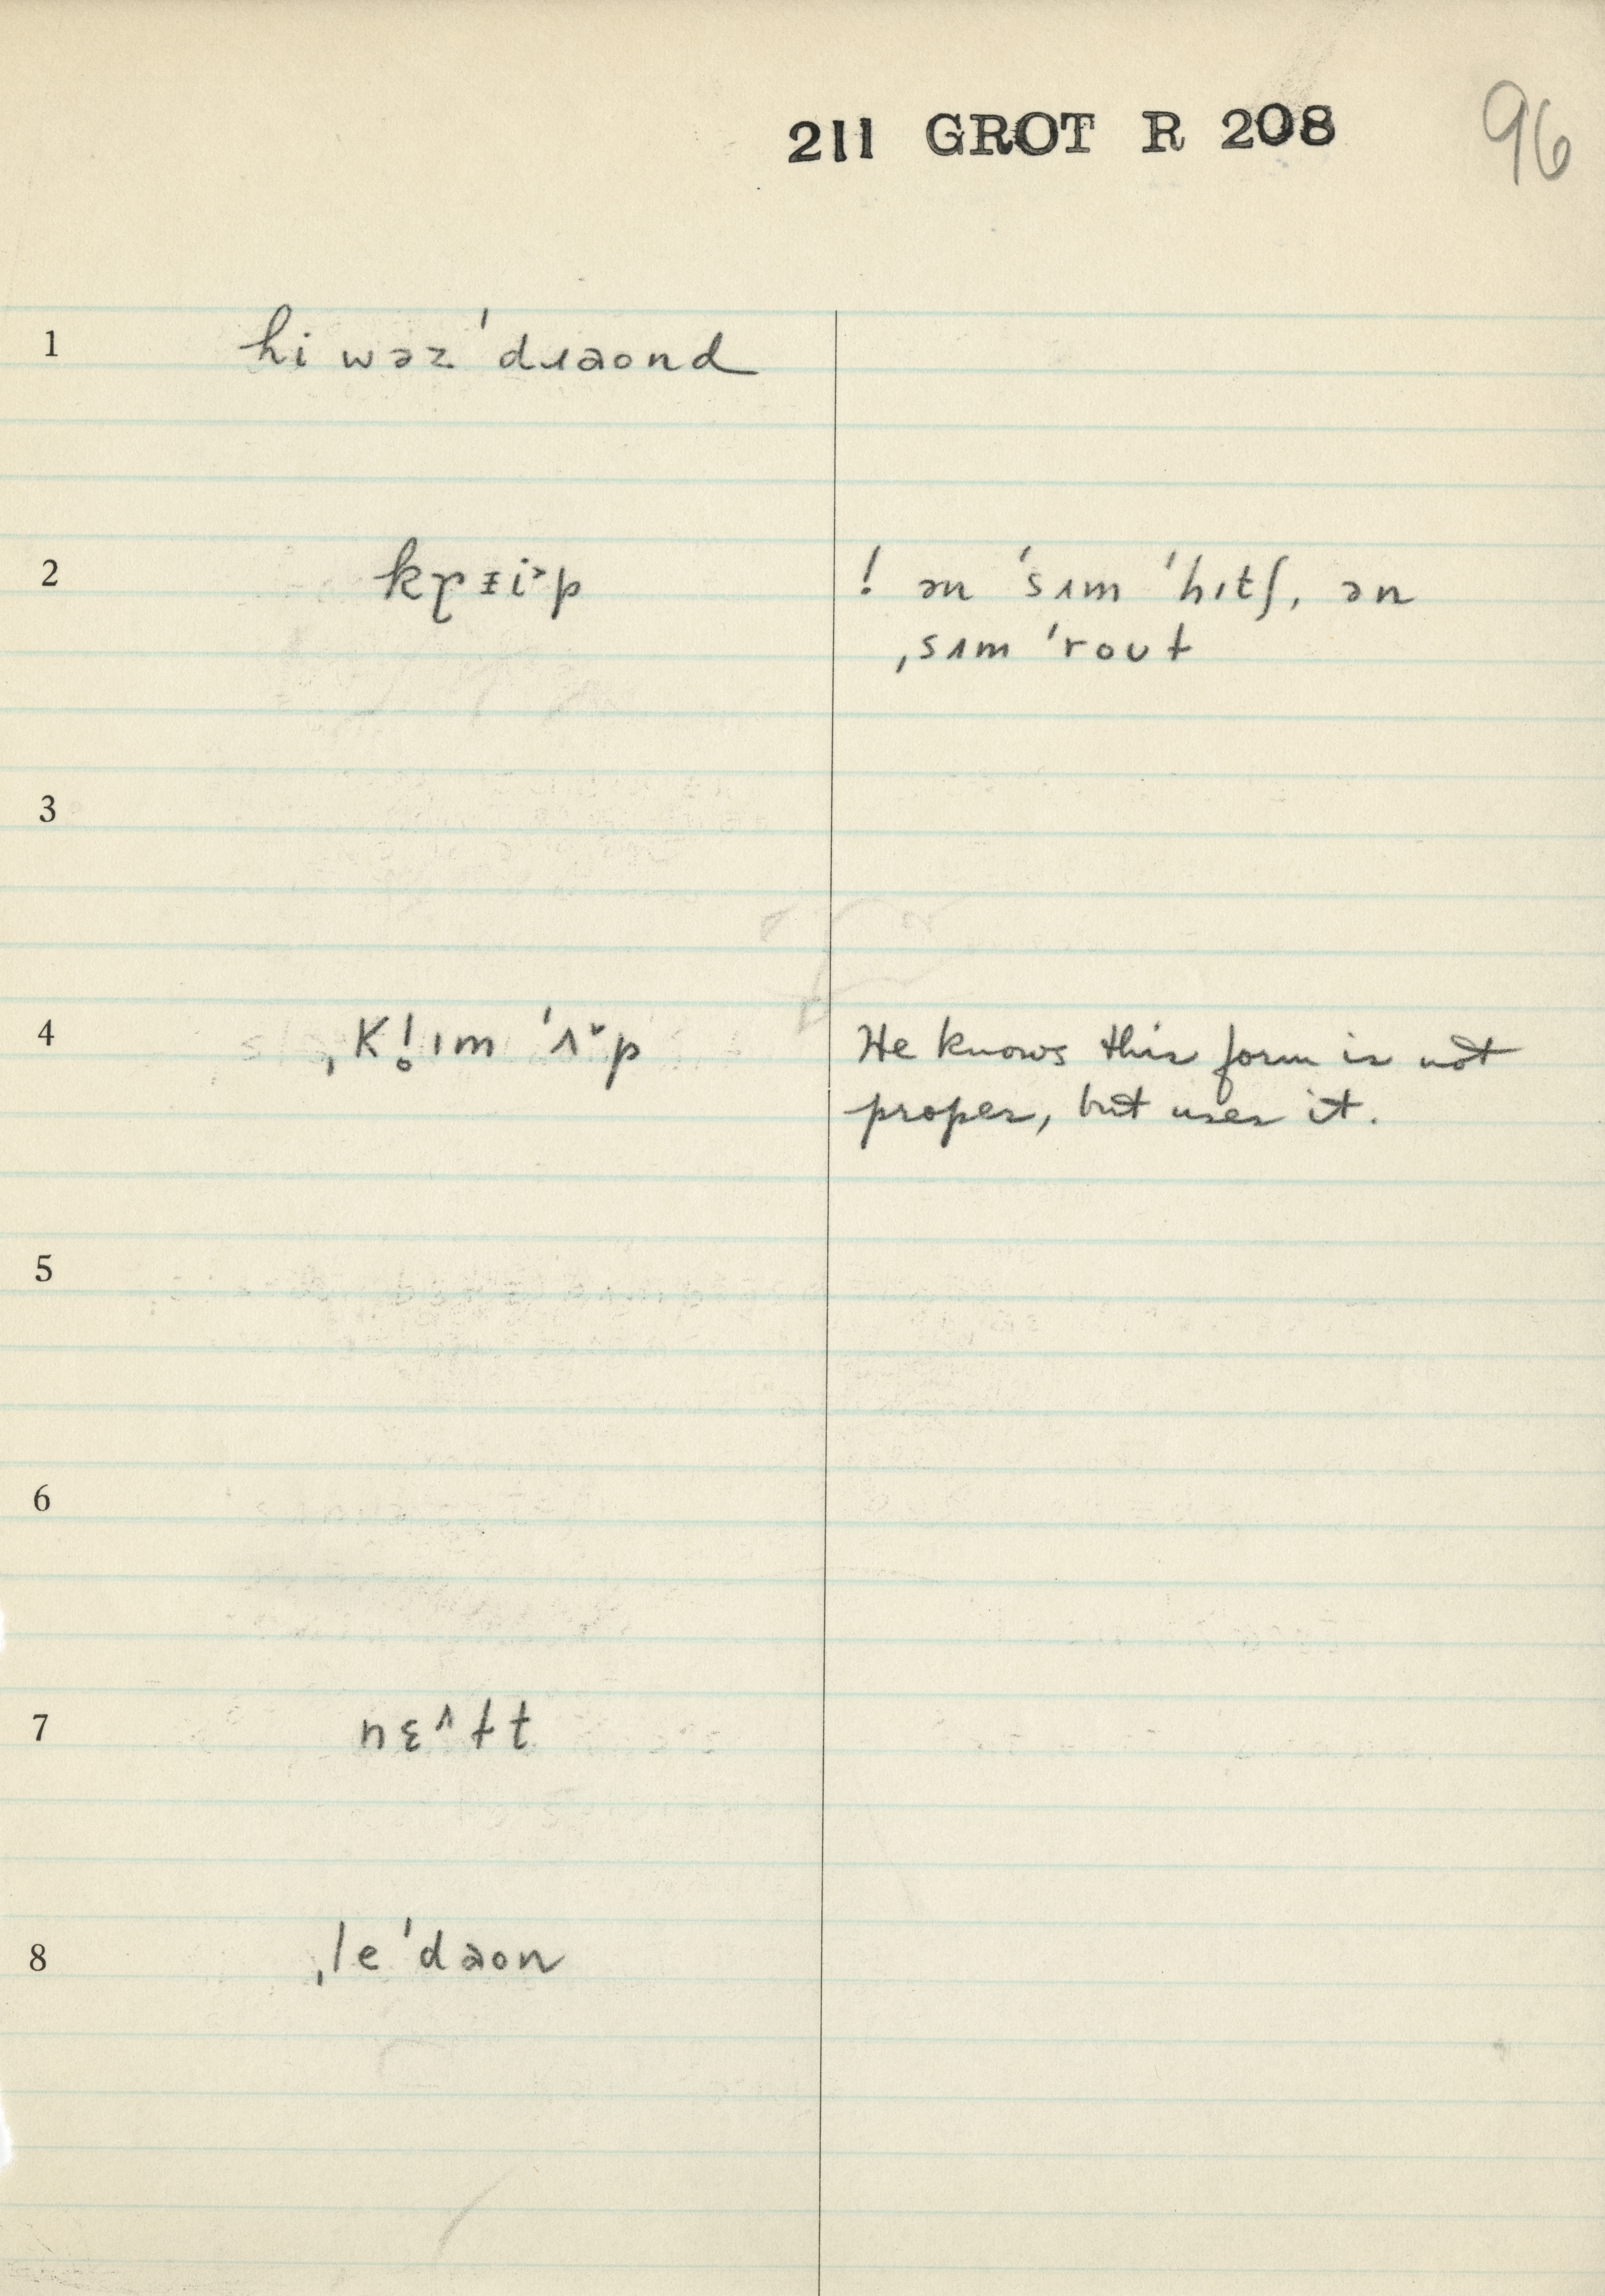 211 GROT R 208 96
1 hi wəz ˈdɹaond
2 ! ən ˈsʌm ˈhɪtʃ, ən
ˌsʌm ˈroʊt
3
4 He knows this form is not
proper, but uses it.
5
6
7 nɛ^tt
8 ˌleˈdaon